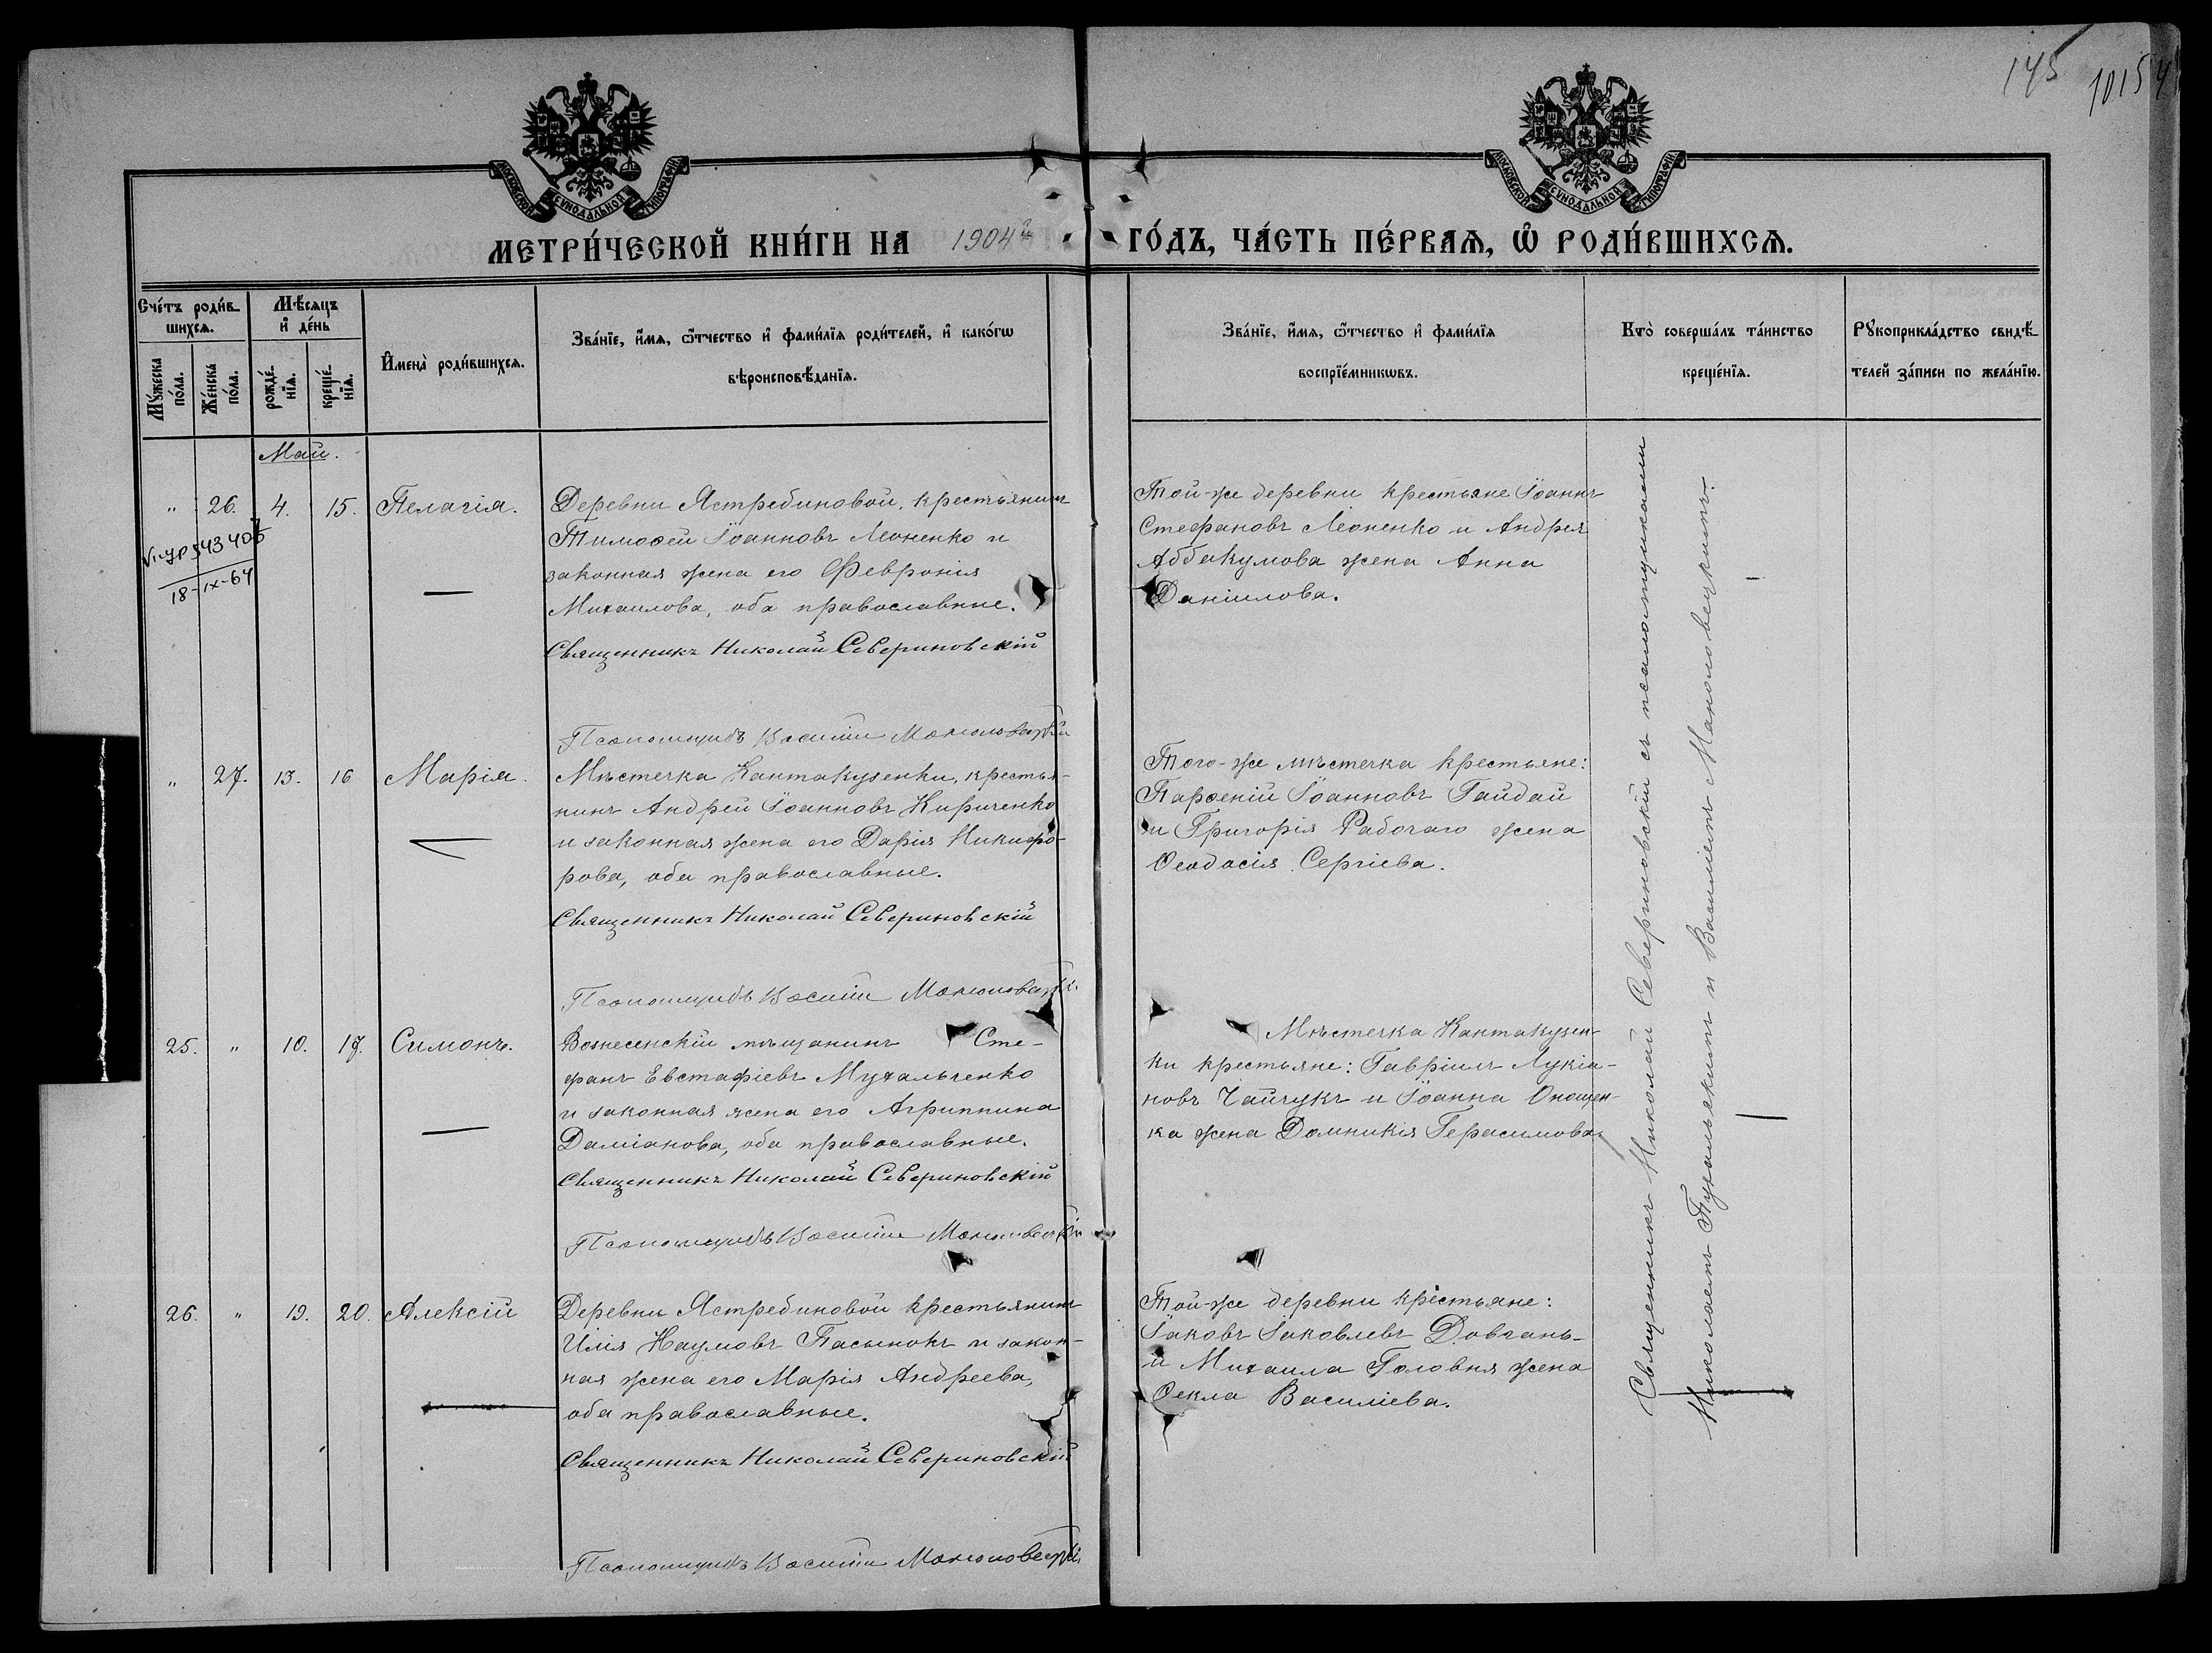 145
1015
МОСКОВСКОЙ СѴНОДАЛЬНОЙ ТИПОГРАФІИ
МОСКОВСКОЙ СѴНОДАЛЬНОЙ ТИПОГРАФІИ
МЕТРИ́ЧЕСКОЙ КНИ́ГИ НА 1904й
ГО́ДЪ, ЧА́СТЬ ПЕ́РВАѦ, Ѿ РОДИ́ВШИХСѦ.
Сче́тъ роди́в-
шихсѧ.
Мѣ́сѧцъ
и҆ де́нь
Мꙋ́жеска
по́ла.
Же́нска
по́ла.
рожде́-
нїѧ.
креще́-
нїѧ.
И҆мена̀ роди́вшихсѧ.
Зва́нїе, и҆́мѧ, ѻ҆́тчество и҆ фами́лїѧ роди́телей, и҆ како́гѡ
вѣроисповѣ́данїѧ.
Зва́нїе, и҆́мѧ, ѻ҆́тчество и҆ фами́лїѧ
воспрїе́мникѡвъ.
Кто̀ соверша́лъ та́инство
креще́нїѧ.
Рꙋкоприкла́дство свидѣ́-
телей за́писи по жела́нїю.
Май.
" 26. 4. 15. Пелагія.
VI-УР 543403
18-IX-64
Деревни Ястребиновой, крестьянинъ
Тимоѳей Іоанновъ Леоненко и
законная жена его Февронія
Михаилова, оба православные.
Священникъ Николай Севериновскій
Псаломщикъ Василій Манкловецкій
Той-же деревни крестьяне Іоаннъ
Стефановъ Леоненко и Андрея
Аббакумова жена Анна
Даніилова.
" 27. 13. 16 Марія.
Мѣстечка Кантакузенки, крестья-
нинъ Андрей Іоанновъ Кириченко
и законная жена его Дарія Никифо-
рова, оба православные.
Священникъ Николай Севериновскій
Псаломщикъ Василій
Того-же мѣстечка крестьяне:
Парѳеній Іоанновъ Гайдай
и Григорія Рабочаго жена
Ѳеодосія Сергіева.
25. " 10. 17. Симонъ.
Вознесенскій мѣщанинъ Сте-
фанъ Евстафіевъ Мухальченко
и законная жена его Агриппина
Даміанова, оба православные.
Священникъ Николай Севериновскій
Псаломщикъ Василій
Мѣстечка Кантакузен-
ки крестьяне: Гавріилъ Лукіа-
новъ Чайчукъ и Іоанна Оношен-
ка жена Домникія Герасимова
26. " 19. 20. Алексій
Деревни Ястребиновой крестьянинъ
Илія Наумовъ Пасынокъ и закон-
ная жена его Марія Андреева,
оба православные.
Священникъ Николай Севериновскій
Псаломщикъ Василій
Той-же деревни крестьяне:
Іаковъ Іаковлевъ Довгань
и Михаила Головня жена
Ѳекла Василіева.
Священникъ Николай Севериновскій съ псаломщиками
Николаемъ и Василіемъ